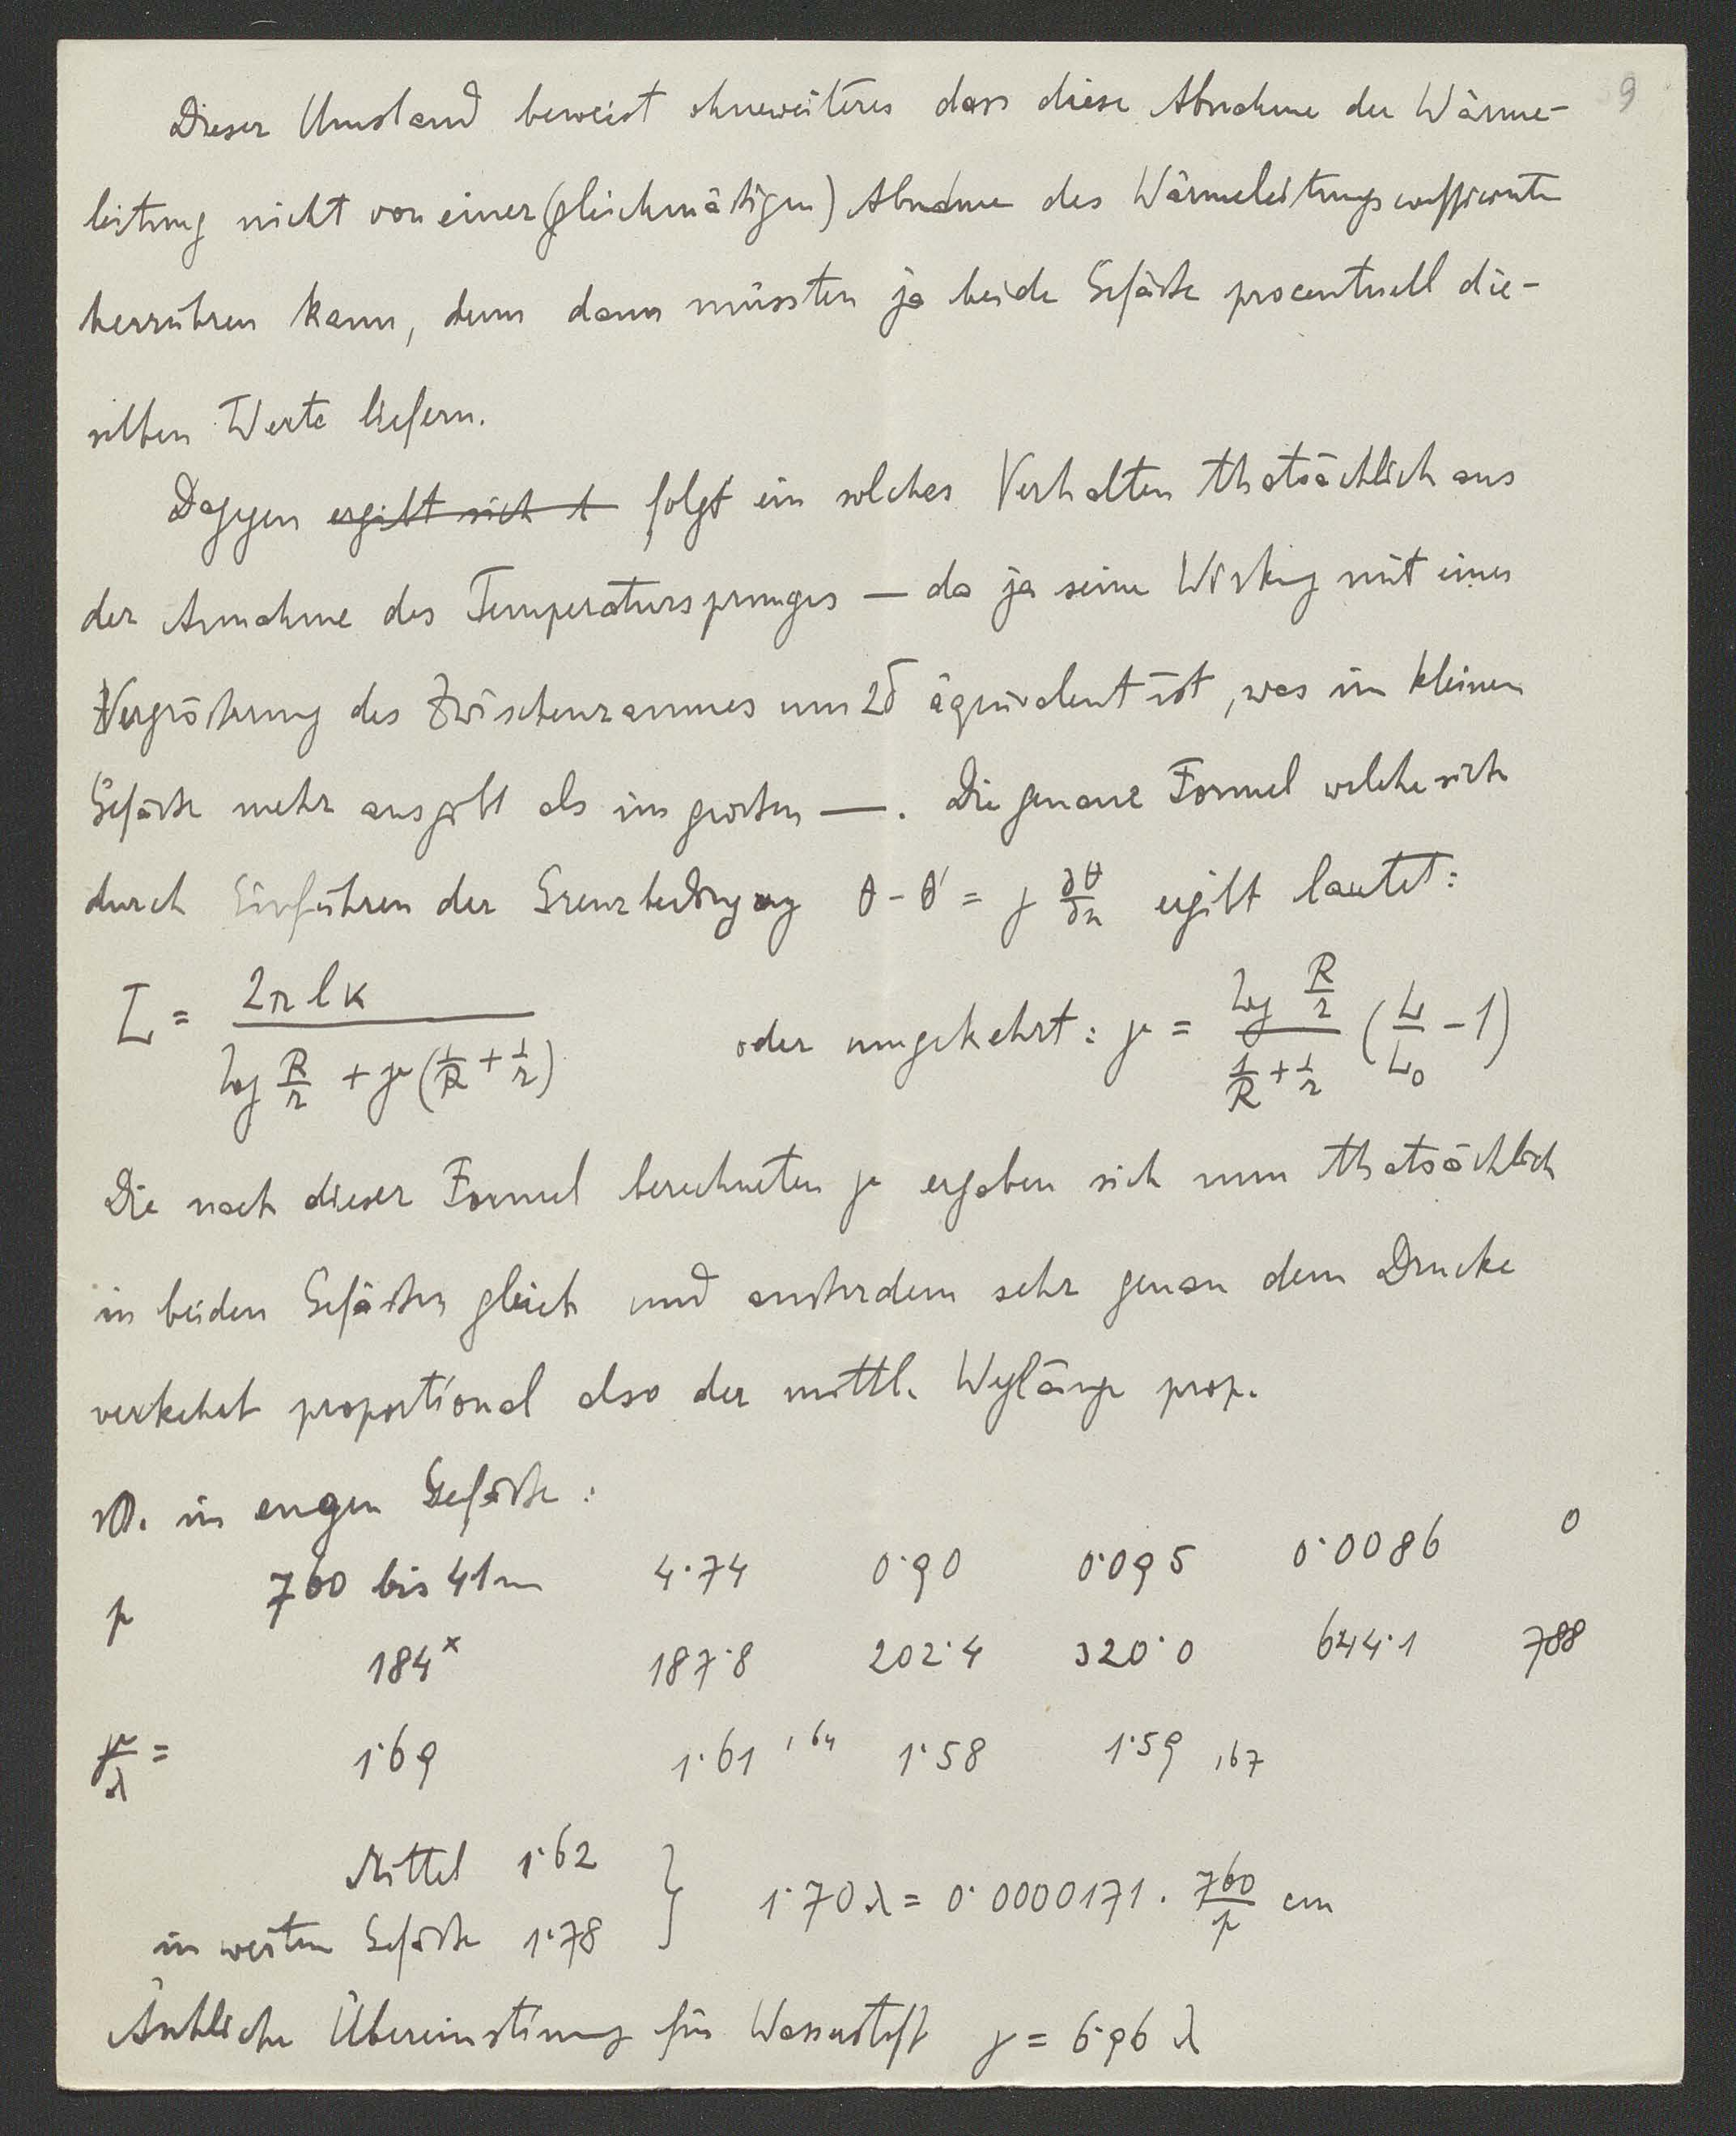 9
Dieser Umstand beweist ohneweiteres dass diese Abnahme der Wärme-
leitung nicht von einer (gleichmäßigen) Abnahme des Wärmeleitungscoefficienten
herrühren kann, denn dann müssten ja beide Gefäße procentuell die-
selben Werte liefern.
Dagegen ergibt sich folgt ein solches Verhalten thatsächlich aus
der Annahme des Temperatursprunges — da ja seine Wirkung mit einer
Vergrößerung des Zwischenraumes um 2δ äquivalent ist, was im kleinen
Gefäße mehr ausgibt als im großen —. Die genaue Formel welche sich
durch Einführen der Grenzbedingung θ - θ' = γ ∂θ/∂n ergibt lautet:
L = 2πlκ / (log R/r + γ(1/R + 1/r)) oder umgekehrt: γ = (log R/r) / (1/R + 1/r) (L/L₀ - 1)
Die nach dieser Formel berechneten γ ergaben sich nun thatsächlich
in beiden Gefäßen gleich und außerdem sehr genau dem Drucke
verkehrt proportional also der mittl. Weglänge prop.
im engen Gefäße:
p 760 bis 41mm 4·74 0·90 0·095 0·0086 0
184ˣ 187·8 202·4 320·0 644·1 788
γ/λ = 1·69 1·61 1,64 1·58 1·59 1,67
Mittel 1·62
in weiten Gefäße 1·78 } 1·70 λ = 0·0000171 · 760/p cm
Ähnliche Übereinstimung für Wasserstoff γ = 6·96 λ